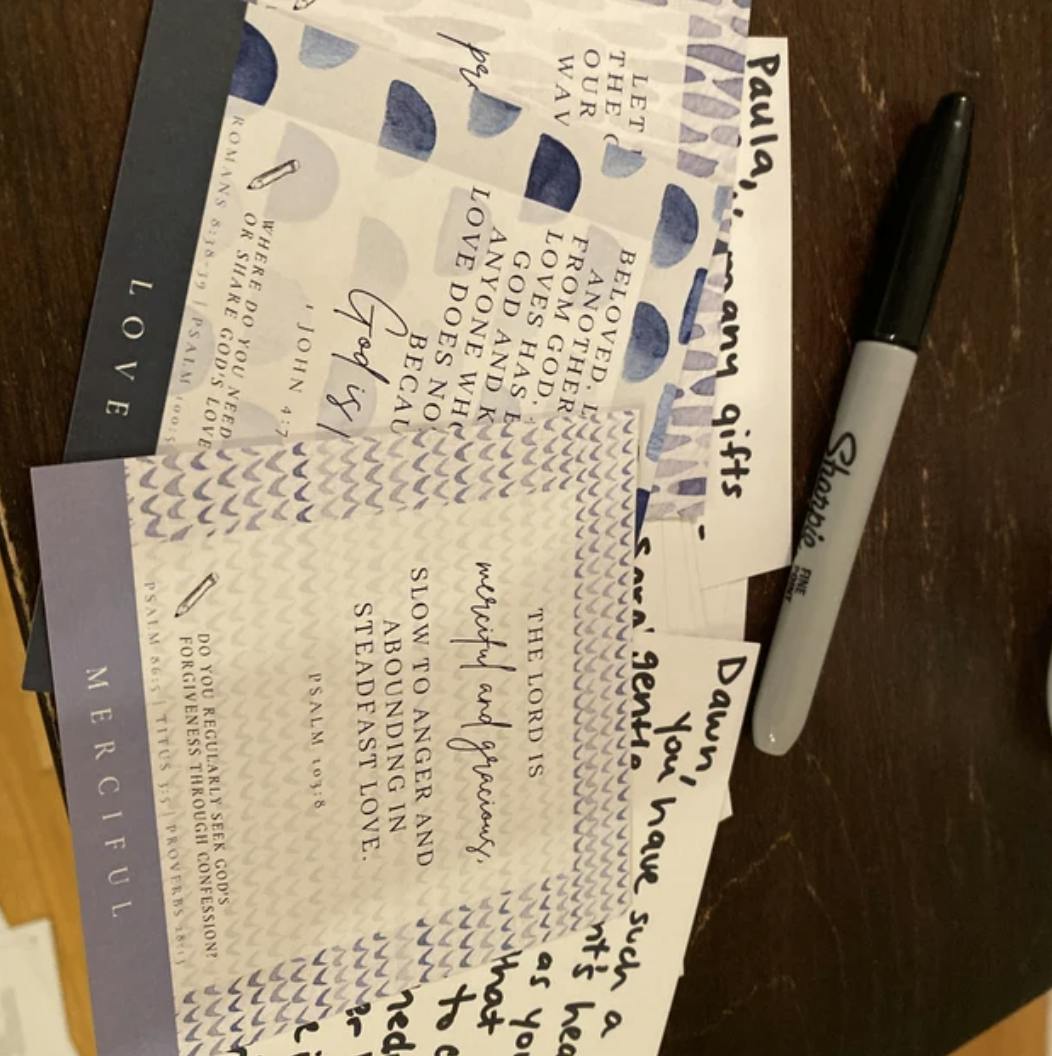 LET
THE
OUR
WAV
BELOVED,
ANOTHER
FROM GOD.
LOVES HAS
GOD AND K
ANYONE WHO
LOVE DOES NO
BECAU
God is
1 JOHN 4:7
WHERE DO YOU NEED
OR SHARE GOD'S LOVE
ROMANS 8:38-39 | PSALM 100:5
LOVE
Paula,
many gifts
-
Sharpie
FINE
POINT
THE LORD IS
merciful and gracious,
SLOW TO ANGER AND
ABOUNDING IN
STEADFAST LOVE.
PSALM 103:8
DO YOU REGULARLY SEEK GOD'S
FORGIVENESS THROUGH CONFESSION?
PSALM 86:5 | TITUS 3:5 | PROVERBS 28:13
MERCIFUL
Dawn,
you have such a
gentle
as you
that
to